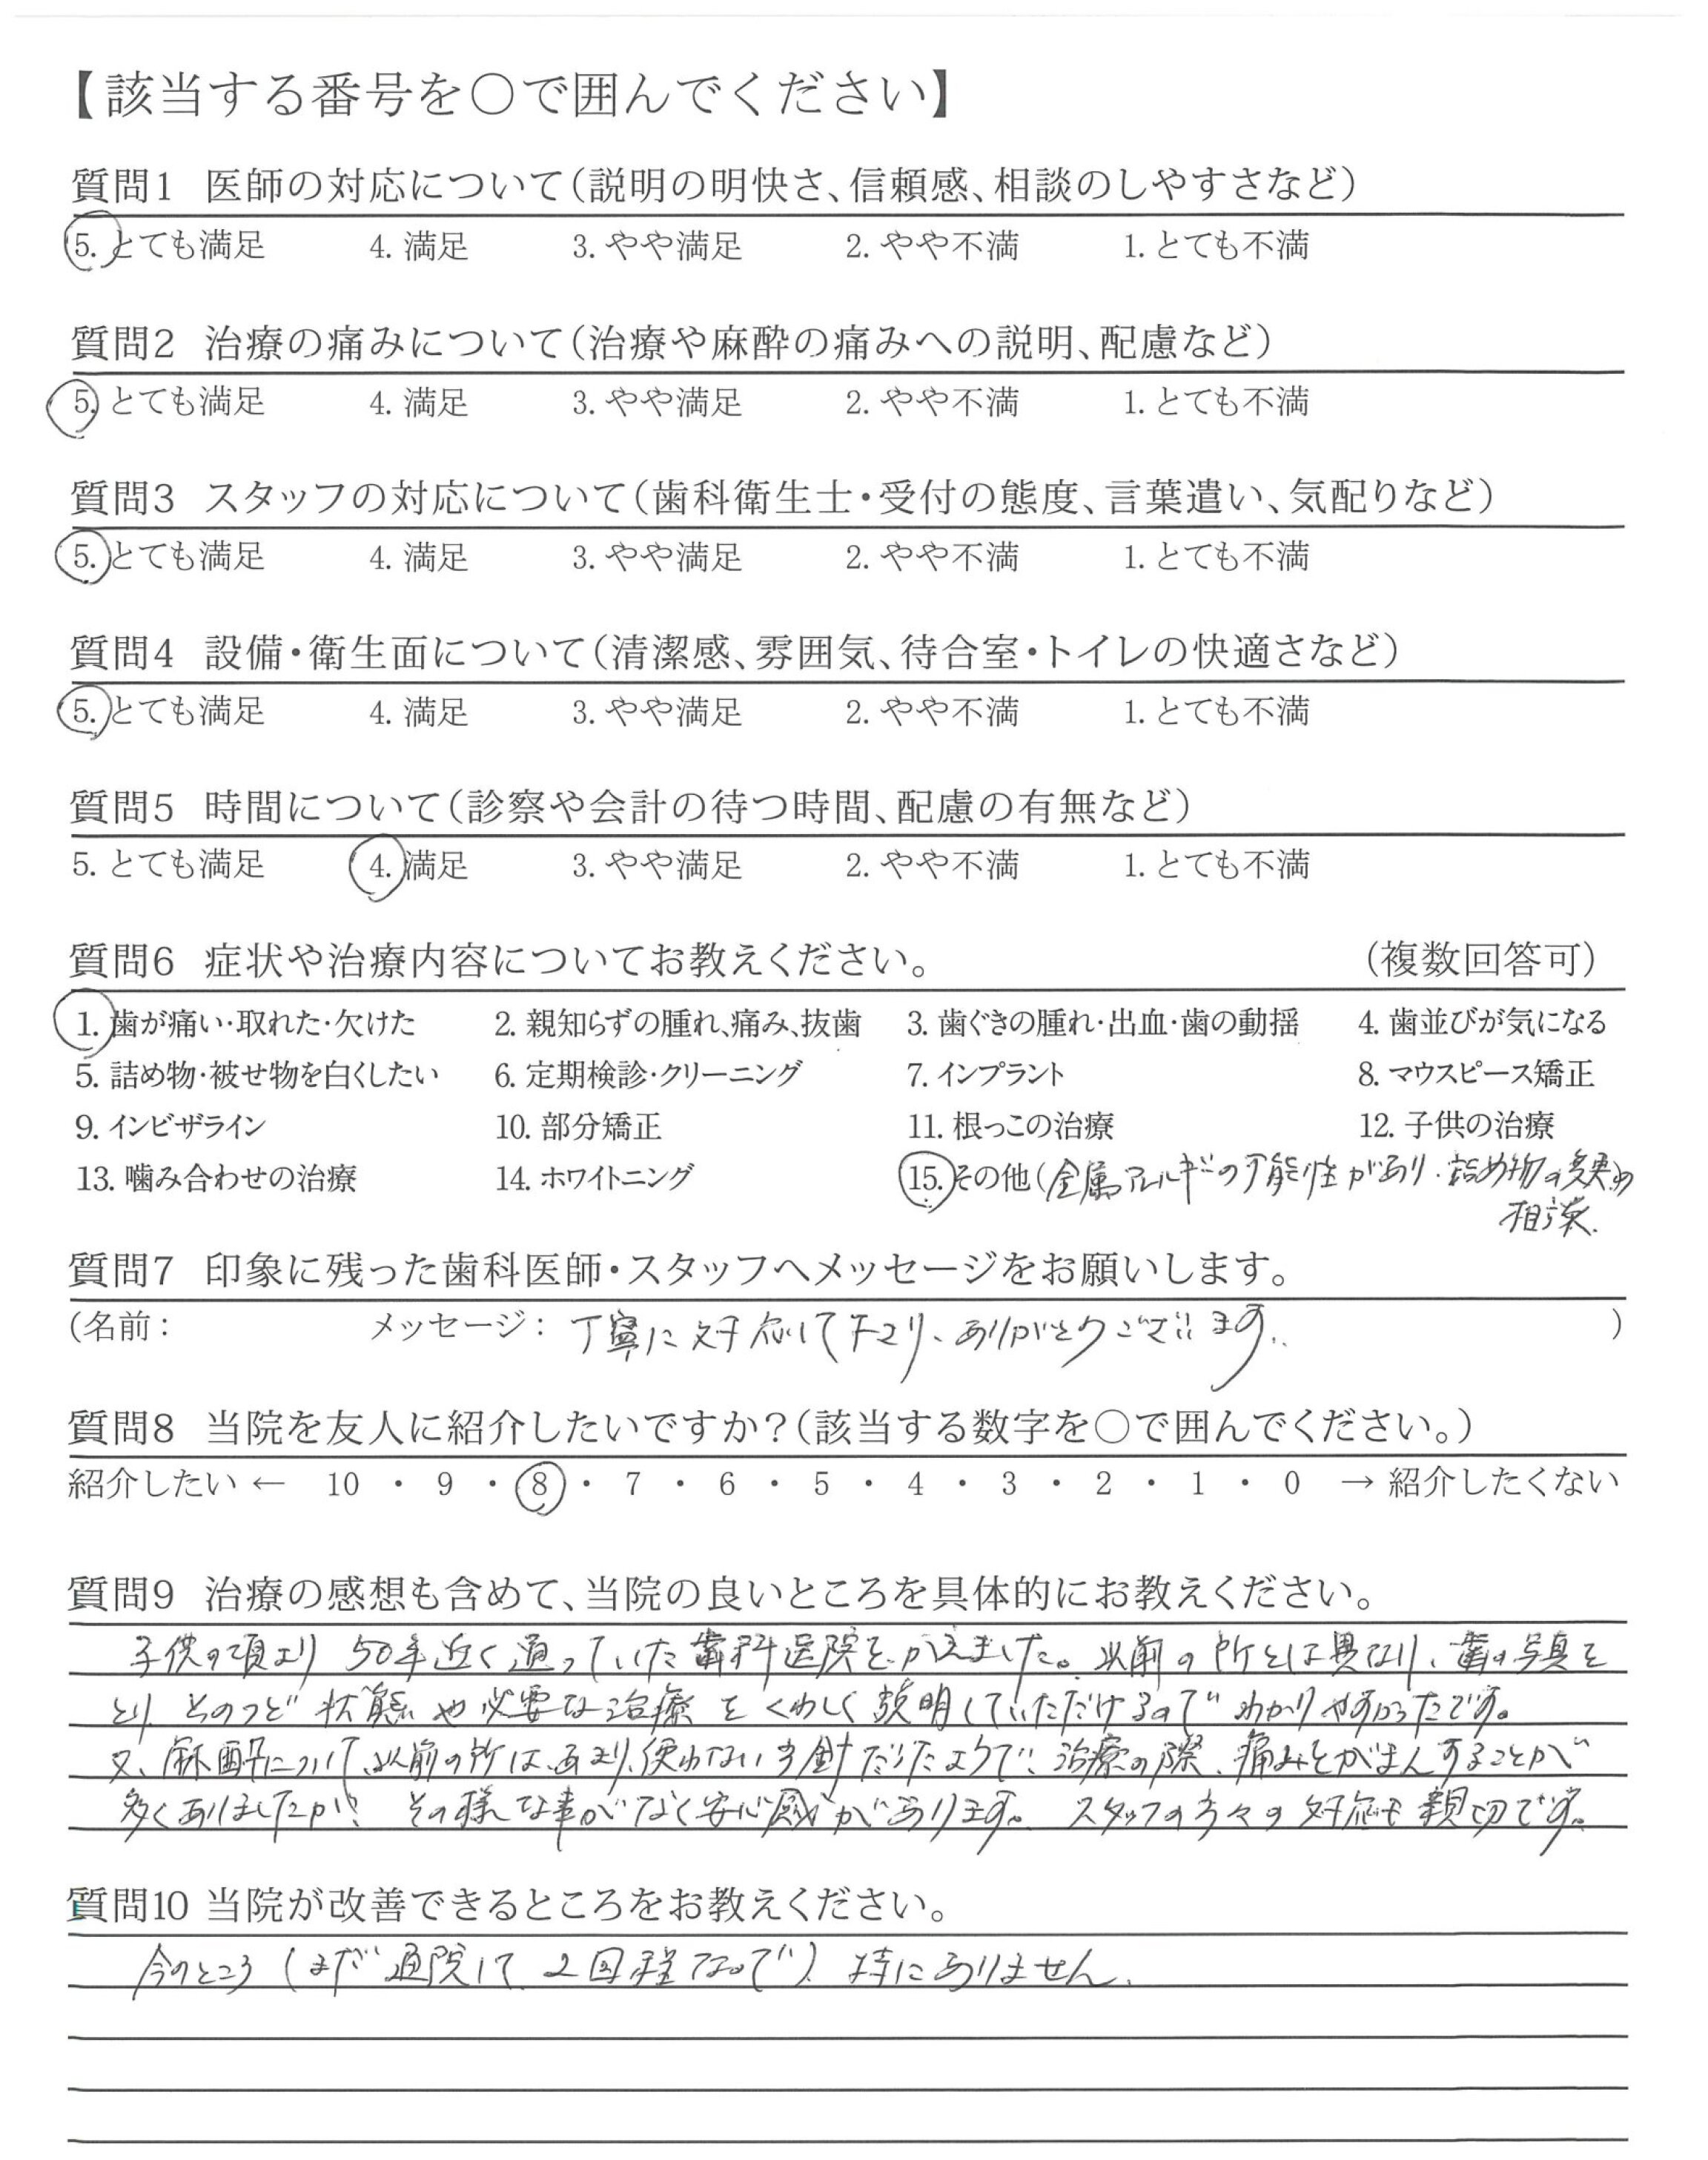 【該当する番号を○で囲んでください】
質問1 医師の対応について(説明の明快さ、信頼感、相談のしやすさなど)
5. とても満足 4. 満足 3. やや満足 2. やや不満 1. とても不満
質問2 治療の痛みについて(治療や麻酔の痛みへの説明、配慮など)
5. とても満足 4. 満足 3. やや満足 2. やや不満 1. とても不満
質問3 スタッフの対応について(歯科衛生士・受付の態度、言葉遣い、気配りなど)
5. とても満足 4. 満足 3. やや満足 2. やや不満 1. とても不満
質問4 設備・衛生面について(清潔感、雰囲気、待合室・トイレの快適さなど)
5. とても満足 4. 満足 3. やや満足 2. やや不満 1. とても不満
質問5 時間について(診察や会計の待つ時間、配慮の有無など)
5. とても満足 4. 満足 3. やや満足 2. やや不満 1. とても不満
質問6 症状や治療内容についてお教えください。 (複数回答可)
1. 歯が痛い・取れた・欠けた 2. 親知らずの腫れ、痛み、抜歯 3. 歯ぐきの腫れ・出血・歯の動揺 4. 歯並びが気になる
5. 詰め物・被せ物を白くしたい 6. 定期検診・クリーニング 7. インプラント 8. マウスピース矯正
9. インビザライン 10. 部分矯正 11. 根っこの治療 12. 子供の治療
13. 噛み合わせの治療 14. ホワイトニング 15. その他(金属アレルギーの可能性があり、詰め物の変更の
相談.
質問7 印象に残った歯科医師・スタッフへメッセージをお願いします。
(名前: メッセージ: 丁寧に対応して下さり、ありがとうございます。 )
質問8 当院を友人に紹介したいですか?(該当する数字を○で囲んでください。)
紹介したい ← 10 ・ 9 ・ 8 ・ 7 ・ 6 ・ 5 ・ 4 ・ 3 ・ 2 ・ 1 ・ 0 → 紹介したくない
質問9 治療の感想も含めて、当院の良いところを具体的にお教えください。
子供の頃より 50年近く通っていた歯科医院をかえました。以前の所とは異なり、歯の写真を
とり そのつど 状態や必要な治療をくわしく説明していただけるので わかりやすかったです。
又、麻酔について、以前の所は、あまり使わない方針だったようで、治療の際、痛みをがまんすることが
多くありましたが、その様な事がなく安心感があります。スタッフの方々の対応も親切です。
質問10 当院が改善できるところをお教えください。
今のところ(まだ通院して 2回程なので)特にありません.